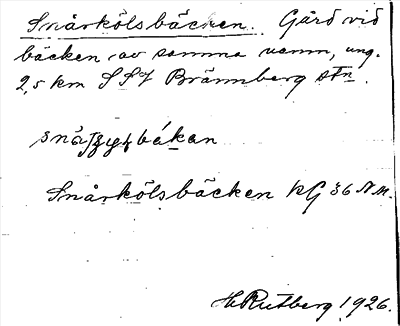 Snårkölsbäcken. Gård vid
bäcken av samma namn, ung.
2,5 km SSV Brännberg stn.
Snårkölsbäcken KG 36 N.M.
H Rutberg 1926.